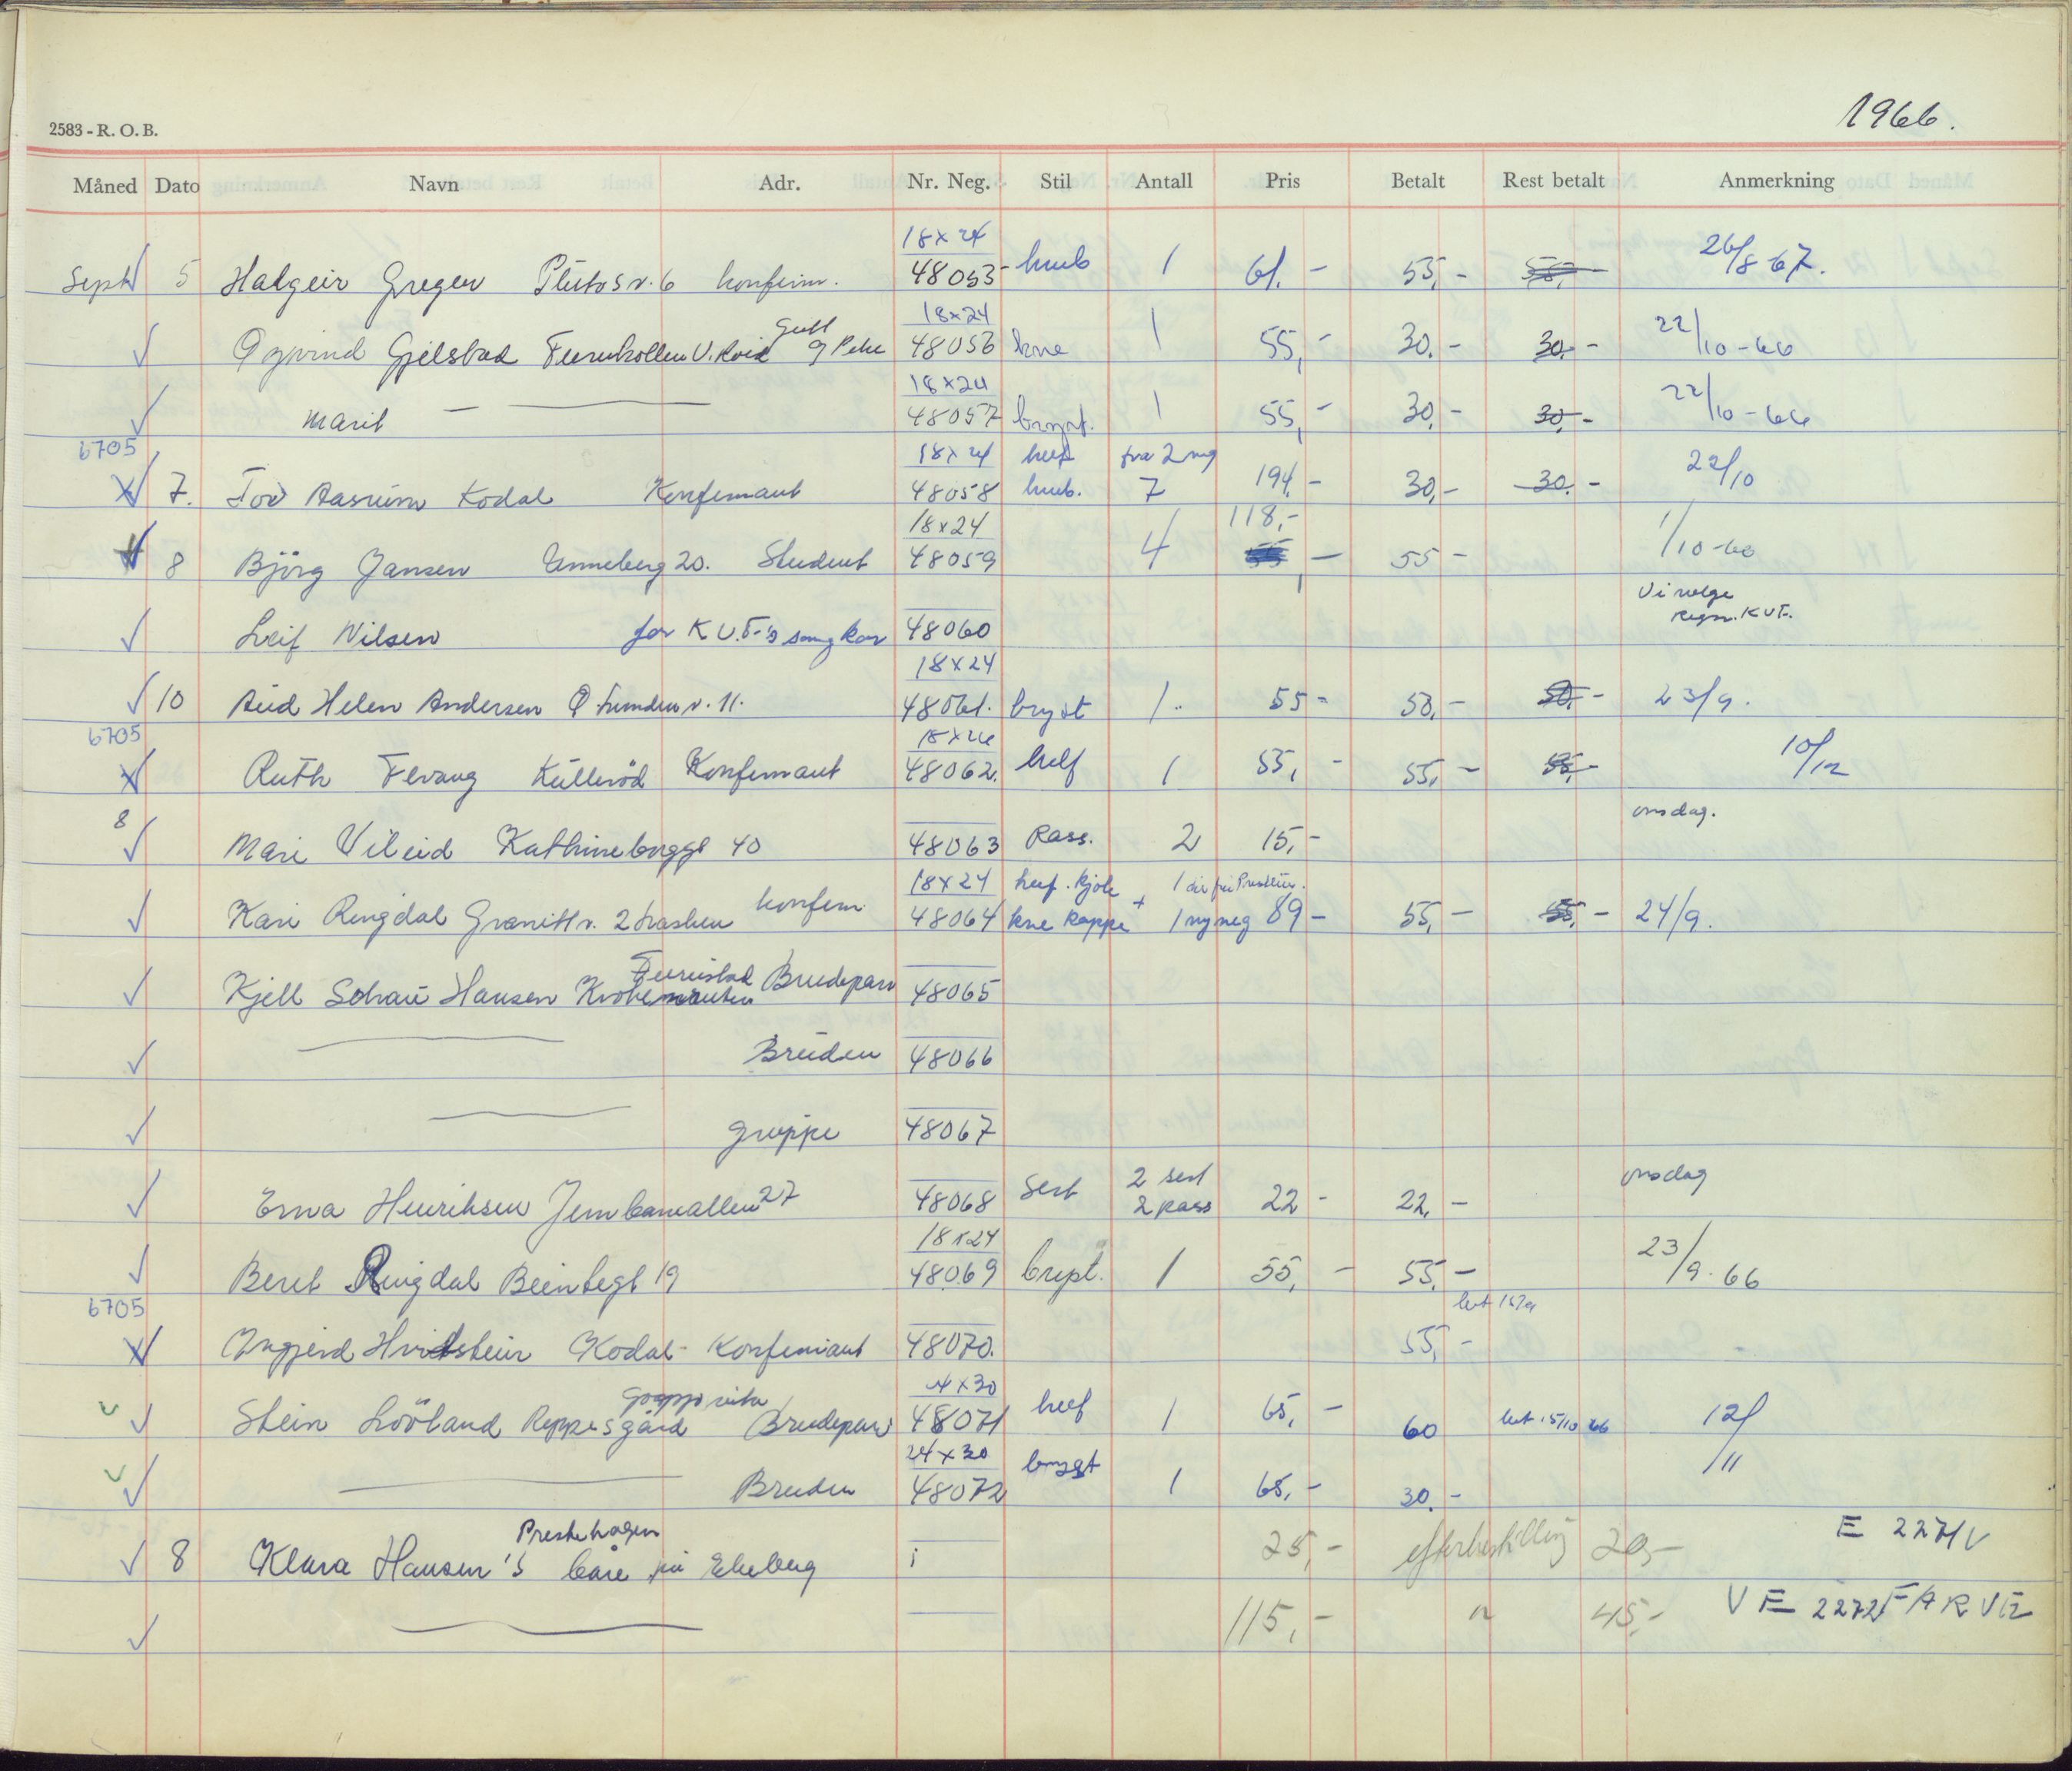 1966.
2583 - R. O. B.
Måned Dato Navn Adr. Nr. Neg. Stil Antall Pris Betalt Rest betalt Anmerkning
18x24
Sept 5 Halgeir Gregen Plutos v. 6 konfirm. 48053 1 61,- 55,- 55,- 26/8-67.
18x24
Øyvind Gjelstad Furukollen V. 48056 kne 1 55,- 30,- 30,- 22/10-66
18x24
Marit — 48057 bryst. 1 55,- 30,- 30,- 22/10-66
6705 18x24 helf fra 2 neg
7. Tov Aasrum Kodal Konfirmant 48058 7 194,- 30,- 30,- 22/10
18x24 118,-
8 Björg Jansen Anneberg 20. Student 48059 4 55,- 55- 1/10-66
Vi velge
Leif Nilsen for K.U.F.'s sangkor 48060 regn. KUF.
18x24
10 Aud Helen Andersen 11. 48061. bryst 1. 55- 50,- 50,- 23/9.
6705 18x24
Ruth Fevang Külleröd Konfirmant 48062. helf 1 55,- 55,- 55,- 10/12
8 onsdag.
Mari Vileid Kathineborggt 40 48063 Pass. 2 15,-
18x24 helf. kjole
Kari Ringdal Granitt v. 2 konfirm. 48064 kne kappe + 1 ny neg 89- 55,- 55,- 24/9.
Furustad
Kjell Hansen Brudepar 48065
— Bruden 48066
— gruppe 48067
2 sert onsdag
Erna Henriksen Jernbanealleen 27 48068 Sert 2 pass 22- 22,-
18x24
Berit Ringdal 19 48069 bryst. 1 55,- 55,- 23/9.66
6705
Ingjerd Hvitstein Kodal- Konfirmant 48070. 55,-
24x30
Stein Lööland Brudepar 48071 helf 1 65,- 60 15/10 66 12/11
24x30
— Bruden 48072 bryst 1 65,- 30,-
Prestehagen E 2271V
8 Klara Hansen's båre på Ekeberg 25,- efterbestilling 20,-
— 115,- " 45,- V E 2272 FARVE